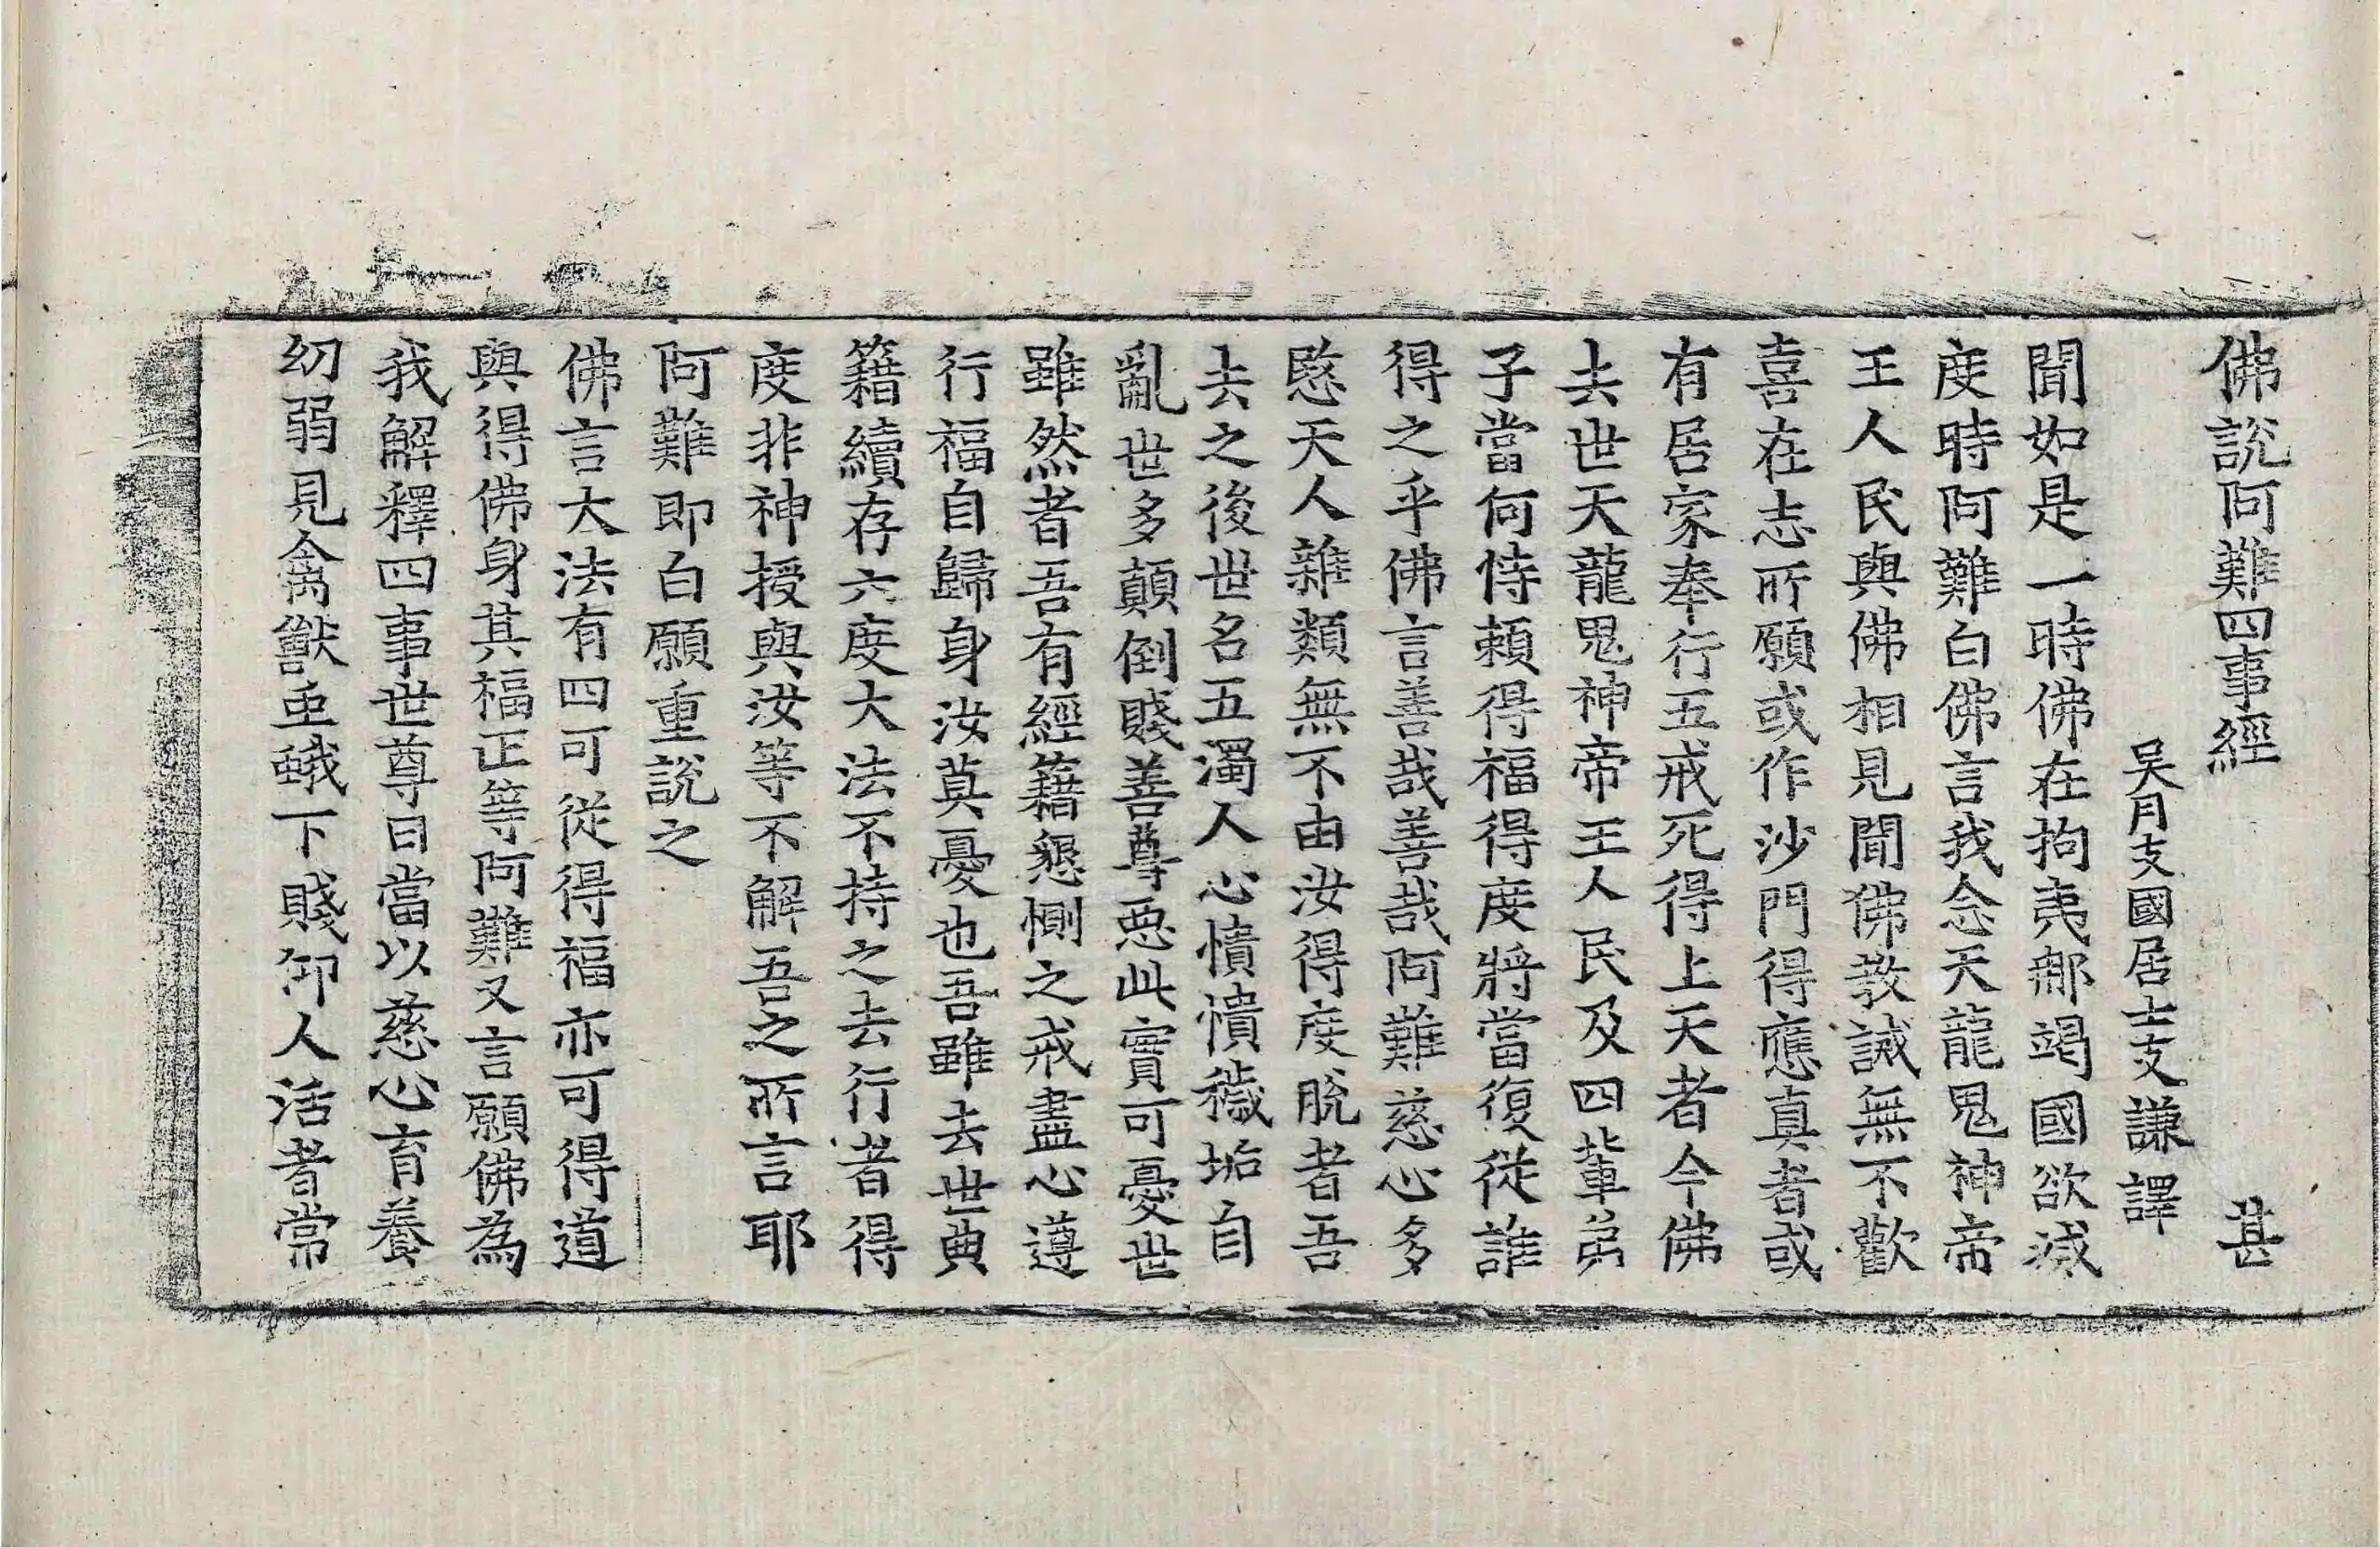 佛說阿難四事經 甚
吳月支國居士支謙譯
聞如是一時佛在拘夷那竭國欲滅
度時阿難白佛言我念天龍鬼神帝
王人民與佛相見聞佛教誡無不歡
喜在志所願或作沙門得應真者或
有居家奉行五戒死得上天者今佛
去世天龍鬼神帝王人民及四輩弟
子當何恃賴得福得度將當復從誰
得之乎佛言善哉善哉阿難慈心多
愍天人雜類無不由汝得度脫者吾
去之後世名五濁人心憒憒穢垢自
亂世多顛倒賤善尊惡此實可憂世
雖然者吾有經籍懇惻之戒盡心遵
行福自歸身汝莫憂也吾雖去世典
籍續存六度大法不持之去行者得
度非神授與汝等不解吾之所言耶
阿難即白願重說之
佛言大法有四可從得福亦可得道
與得佛身其福正等阿難又言願佛為
我解釋四事世尊曰當以慈心育養
幼弱見禽獸虫蛾下賤仰人活者常